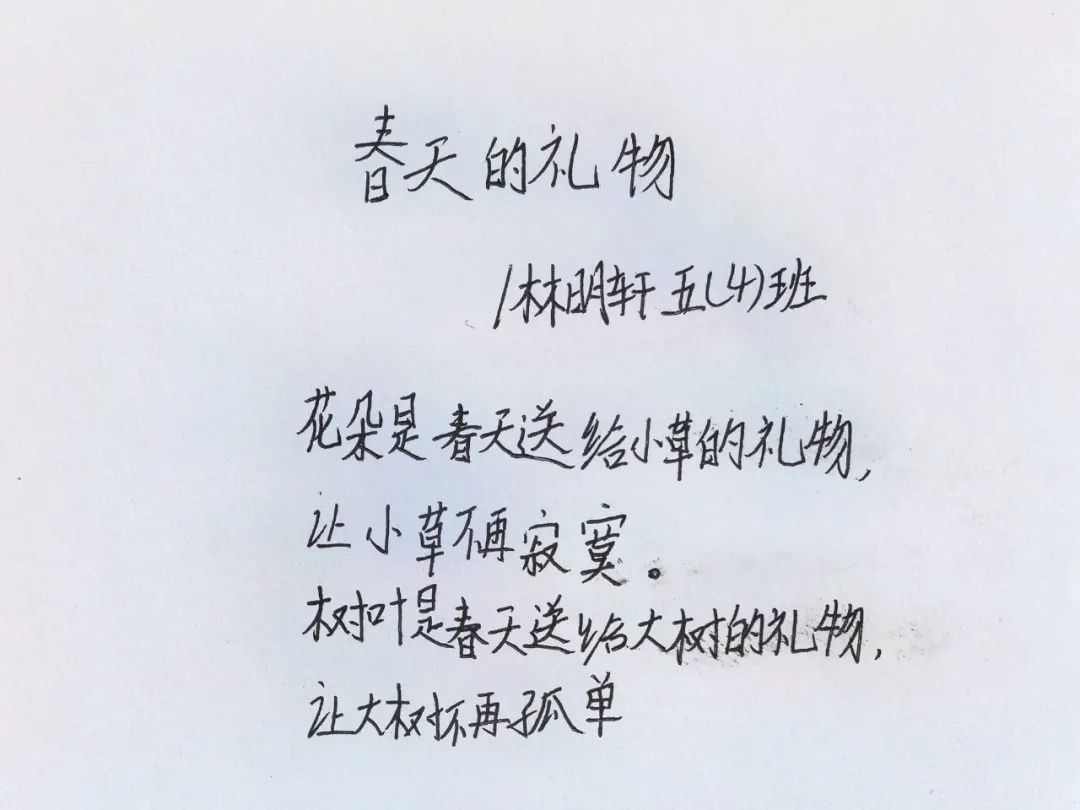 春天的礼物
/林明轩 五(4)班
花朵是春天送给小草的礼物,
让小草不再寂寞。
树叶是春天送给大树的礼物,
让大树不再孤单